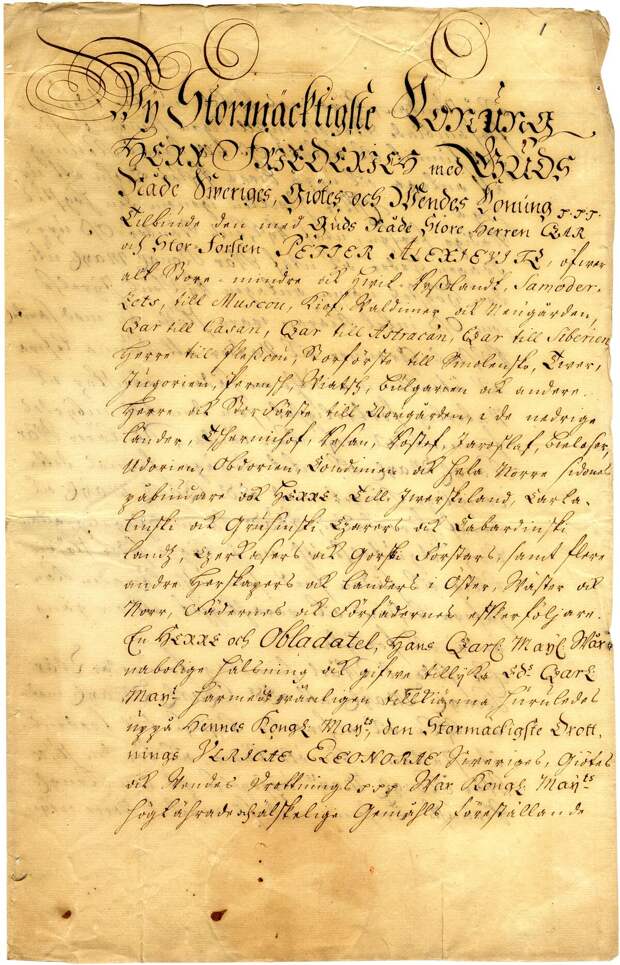 1
Wy Stormäcktigste Konung
HERR FRIEDERICS med GUDS
Nåde Sweriges, Giötes och Wendes Konung p.p.p.
Tilbiude den med Guds Nåde Store Herren CZAR
och Stor-Försten PETTER ALEXIEVITZ, öfwer
alt Store-mindre och hwit-Ryßlandt, Samoder-
Lets, till Muscou, Kiof, Valdimer och Neugården,
Czar till Casan, Czar till Astracan, Czar till Siberien,
Herre till Pleßcou, Storförste till Smolensko, Twer,
Jugorien, Permsch, Wiatsch, Bulgarien och andere.
Herre och Storförste till Novgården, i de nedrige
länder, Tschernihof, Resan, Rostof, Jaroslaf, Bieloser,
Udorien, Obdorien, Condinien och hela Norre sidones
påbiudare och HERRE: Till Iwerskiland, Carta-
linski och Grusinski Czarers och Cabardinski
landz, Czerkasers och Gorski Förstars, samt flere
andre Herskapers och länders i Öster, Wäster och
Norr, Fädernes och Förfädernes efterföljare.
En HERRE och Obladatel, Hans Czar. May. Wår
nabolige hälsning och gifwe tillyka Ed. Czar.
May. härmedh wänligen tillkiänna huruledes
uppå Hennes Kongl. Mayts, den Stormäcktigste Drott-
nings VLRICAE ELEONORAE Sweriges, Giötes
och Wendes Drottnings p.p.p. Wår Kongl. Mayts
högtährade och älskelige Gemåhls föreställande